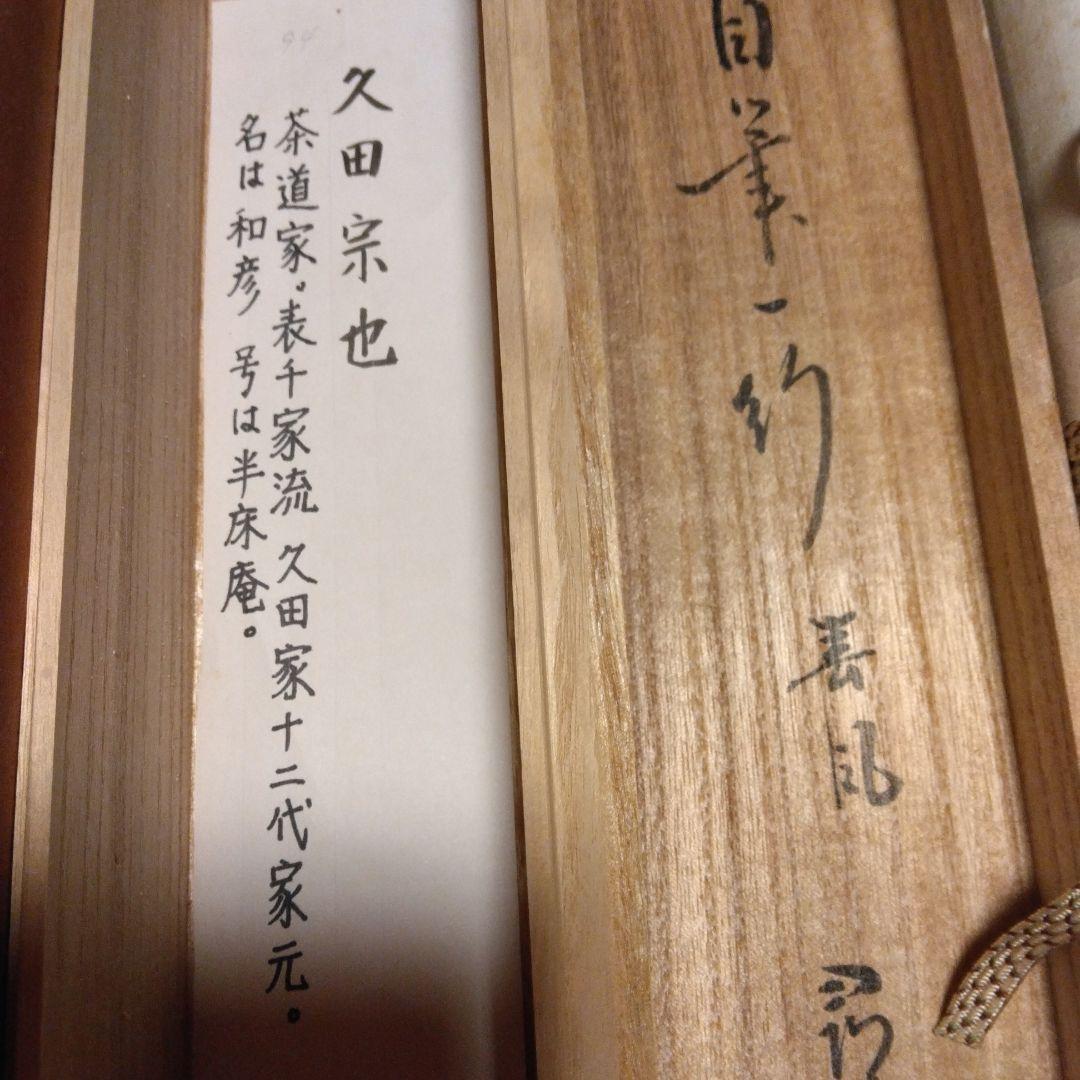 自筆一行
春風
久田宗也
茶道家。表千家流 久田家十二代家元。
名は和彦 号は半床庵。